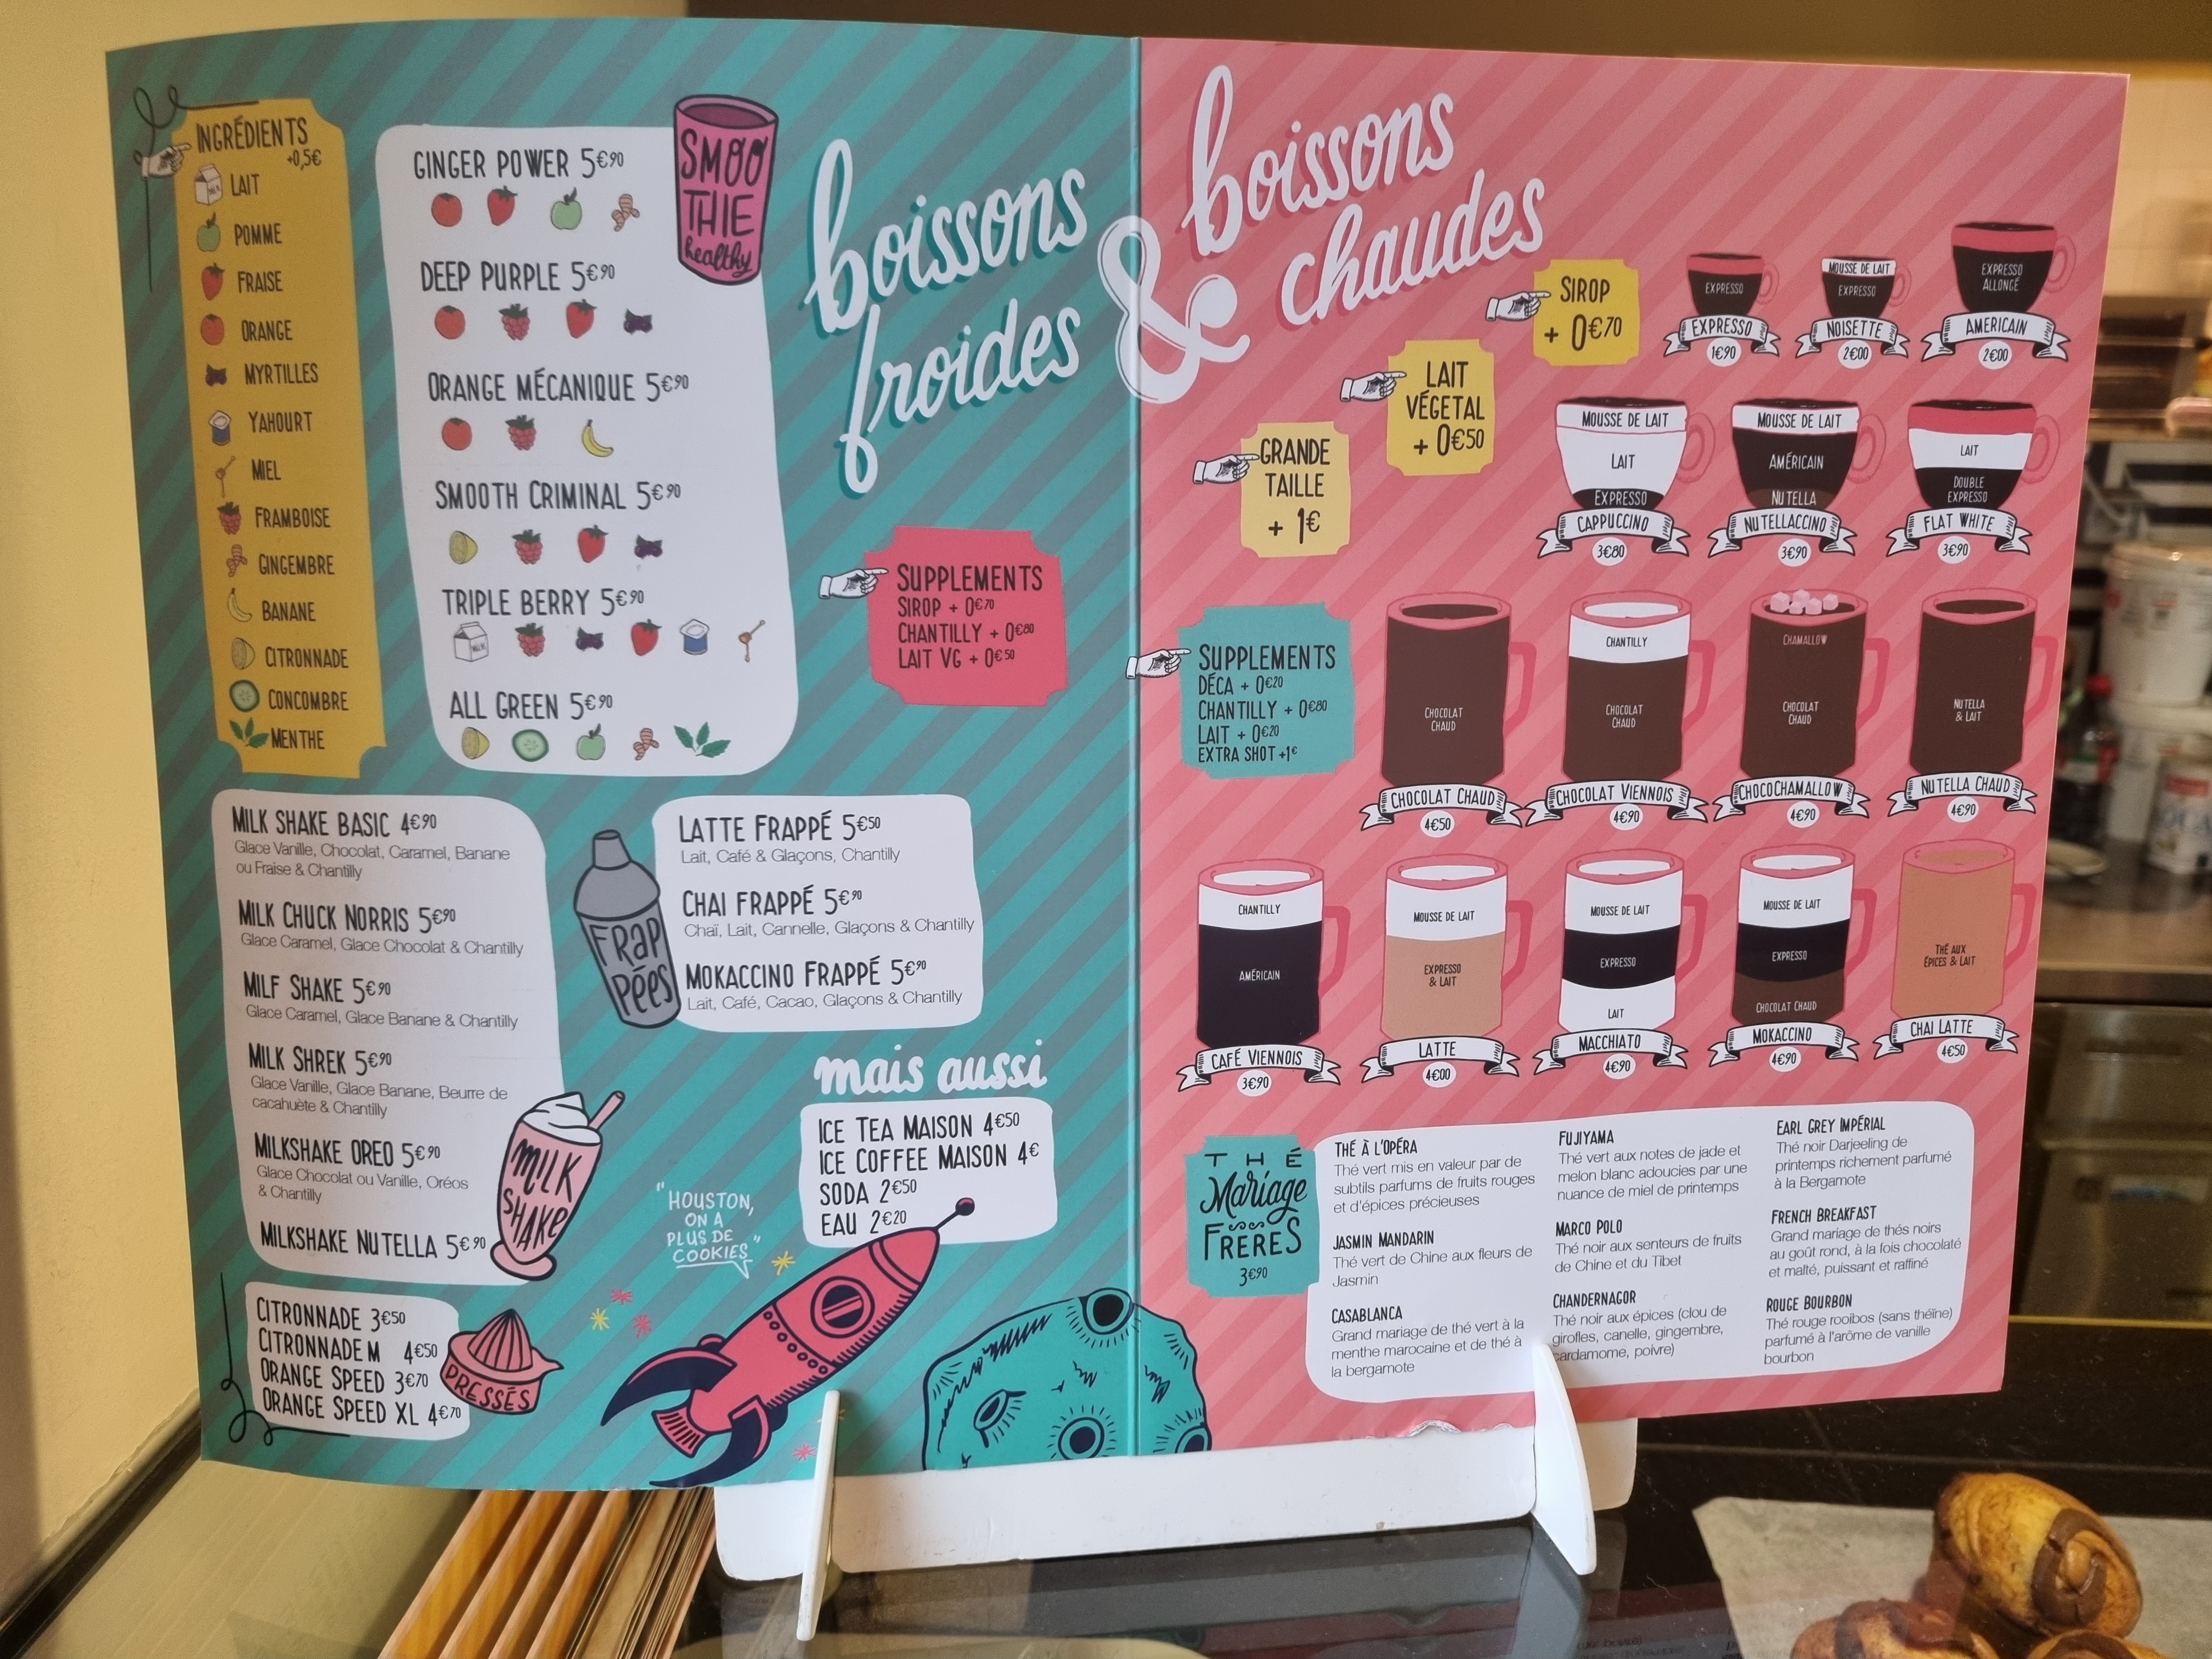 INGRÉDIENTS
+0,5€
LAIT
POMME
FRAISE
ORANGE
MYRTILLES
YAHOURT
MIEL
FRAMBOISE
GINGEMBRE
BANANE
CITRONNADE
CONCOMBRE
MENTHE
GINGER POWER 5€90
DEEP PURPLE 5€90
ORANGE MÉCANIQUE 5€90
SMOOTH CRIMINAL 5€90
TRIPLE BERRY 5€90
MILK
ALL GREEN 5€90
SMOO
THIE
healthy
boissons
froides
&
boissons
chaudes
SUPPLEMENTS
SIROP + 0€70
CHANTILLY + 0€80
LAIT VG + 0€50
MILK SHAKE BASIC 4€90
Glace Vanille, Chocolat, Caramel, Banane
ou Fraise & Chantilly
MILK CHUCK NORRIS 5€90
Glace Caramel, Glace Chocolat & Chantilly
MILF SHAKE 5€90
Glace Caramel, Glace Banane & Chantilly
MILK SHREK 5€90
Glace Vanille, Glace Banane, Beurre de
cacahuète & Chantilly
MILKSHAKE OREO 5€90
Glace Chocolat ou Vanille, Oréos
& Chantilly
MILKSHAKE NUTELLA 5€90
MILK
SHAKE
FRAP
PÉES
LATTE FRAPPÉ 5€50
Lait, Café & Glaçons, Chantilly
CHAI FRAPPÉ 5€90
Chaï, Lait, Cannelle, Glaçons & Chantilly
MOKACCINO FRAPPÉ 5€90
Lait, Café, Cacao, Glaçons & Chantilly
mais aussi
ICE TEA MAISON 4€50
ICE COFFEE MAISON 4€
SODA 2€50
EAU 2€20
"HOUSTON,
ON A
PLUS DE
COOKIES"
CITRONNADE 3€50
CITRONNADE M 4€50
ORANGE SPEED 3€70
ORANGE SPEED XL 4€70
PRESSÉS
SIROP
+ 0€70
LAIT
VÉGETAL
+ 0€50
GRANDE
TAILLE
+ 1€
SUPPLEMENTS
DÉCA + 0€20
CHANTILLY + 0€80
LAIT + 0€20
EXTRA SHOT +1€
EXPRESSO
EXPRESSO
1€90
MOUSSE DE LAIT
EXPRESSO
NOISETTE
2€00
EXPRESSO
ALLONGÉ
AMERICAIN
2€00
MOUSSE DE LAIT
LAIT
EXPRESSO
CAPPUCCINO
3€80
MOUSSE DE LAIT
AMÉRICAIN
NUTELLA
NUTELLACCINO
3€90
LAIT
DOUBLE
EXPRESSO
FLAT WHITE
3€90
CHOCOLAT
CHAUD
CHOCOLAT CHAUD
4€50
CHANTILLY
CHOCOLAT
CHAUD
CHOCOLAT VIENNOIS
4€90
CHAMALLOW
CHOCOLAT
CHAUD
CHOCOCHAMALLOW
4€90
NUTELLA
& LAIT
NUTELLA CHAUD
4€90
CHANTILLY
AMÉRICAIN
CAFÉ VIENNOIS
3€90
MOUSSE DE LAIT
EXPRESSO
& LAIT
LATTE
4€00
MOUSSE DE LAIT
EXPRESSO
LAIT
MACCHIATO
4€90
MOUSSE DE LAIT
EXPRESSO
CHOCOLAT CHAUD
MOKACCINO
4€90
THÉ AUX
ÉPICES & LAIT
CHAI LATTE
4€50
THÉ
Mariage
FRÈRES
3€90
THÉ À L'OPÉRA
Thé vert mis en valeur par de
subtils parfums de fruits rouges
et d'épices précieuses
JASMIN MANDARIN
Thé vert de Chine aux fleurs de
Jasmin
CASABLANCA
Grand mariage de thé vert à la
menthe marocaine et de thé à
la bergamote
FUJIYAMA
Thé vert aux notes de jade et
melon blanc adoucies par une
nuance de miel de printemps
MARCO POLO
Thé noir aux senteurs de fruits
de Chine et du Tibet
CHANDERNAGOR
Thé noir aux épices (clou de
girofles, canelle, gingembre,
cardamome, poivre)
EARL GREY IMPÉRIAL
Thé noir Darjeeling de
printemps richement parfumé
à la Bergamote
FRENCH BREAKFAST
Grand mariage de thés noirs
au goût rond, à la fois chocolaté
et malté, puissant et raffiné
ROUGE BOURBON
Thé rouge rooibos (sans théïne)
parfumé à l'arôme de vanille
bourbon